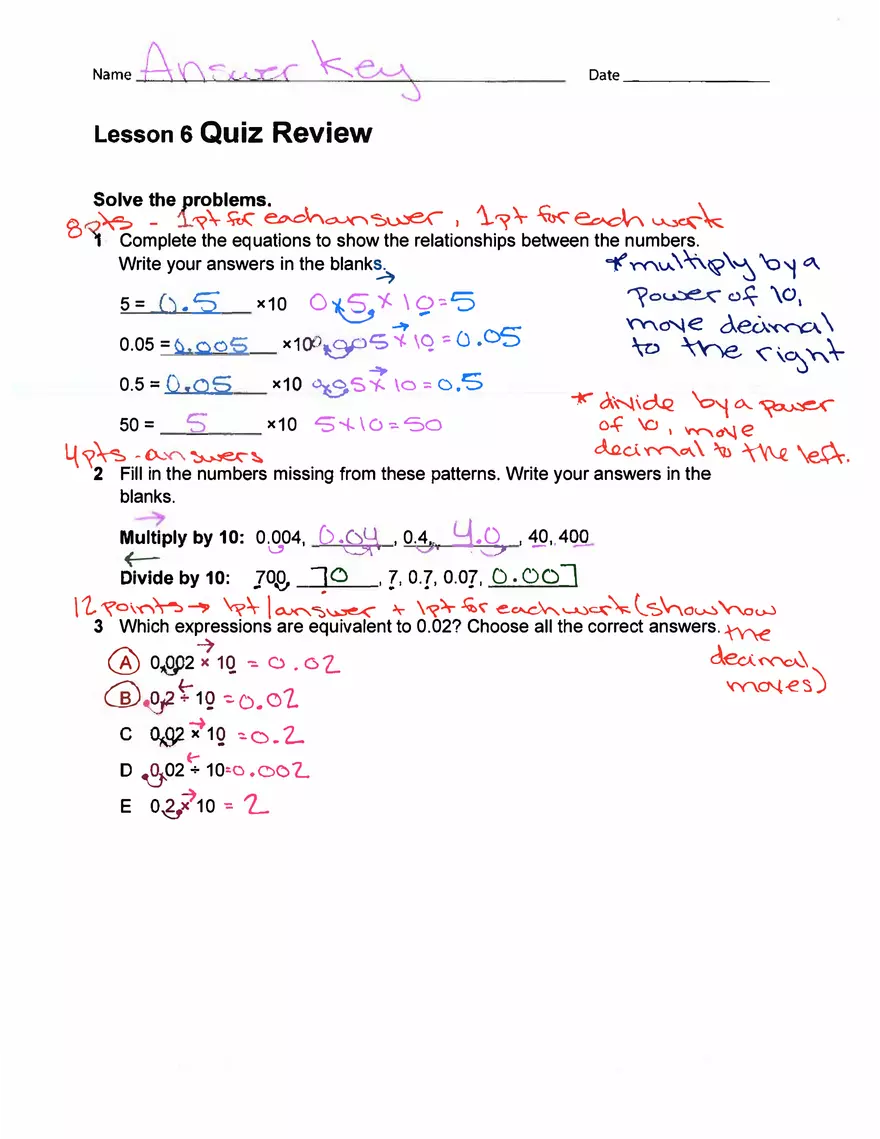 Name Answer Key Date
Lesson 6 Quiz Review
Solve the problems.
8pts - 1pt for each answer, 1pt for each work
1 Complete the equations to show the relationships between the numbers.
Write your answers in the blanks.
*multiply by a
Power of 10,
move decimal
to the right
5 = 0.5 ×10 0.5 × 10 = 5
0.05 = 0.005 ×10 0.005 × 10 = 0.05
0.5 = 0.05 ×10 0.05 × 10 = 0.5
50 = 5 ×10 5 × 10 = 50
* divide by a power
of 10, move
decimal to the left.
4pts - answers
2 Fill in the numbers missing from these patterns. Write your answers in the
blanks.
Multiply by 10: 0.004, 0.04, 0.4, 4.0, 40, 400
Divide by 10: 700, 70, 7, 0.7, 0.07, 0.007
12 points → 1pt/answer + 1pt for each work (show how
the
decimal
moves)
3 Which expressions are equivalent to 0.02? Choose all the correct answers.
A 0.002 × 10 = 0.02
B 0.2 ÷ 10 = 0.02
C 0.02 × 10 = 0.2
D 0.02 ÷ 10 = 0.002
E 0.2 × 10 = 2